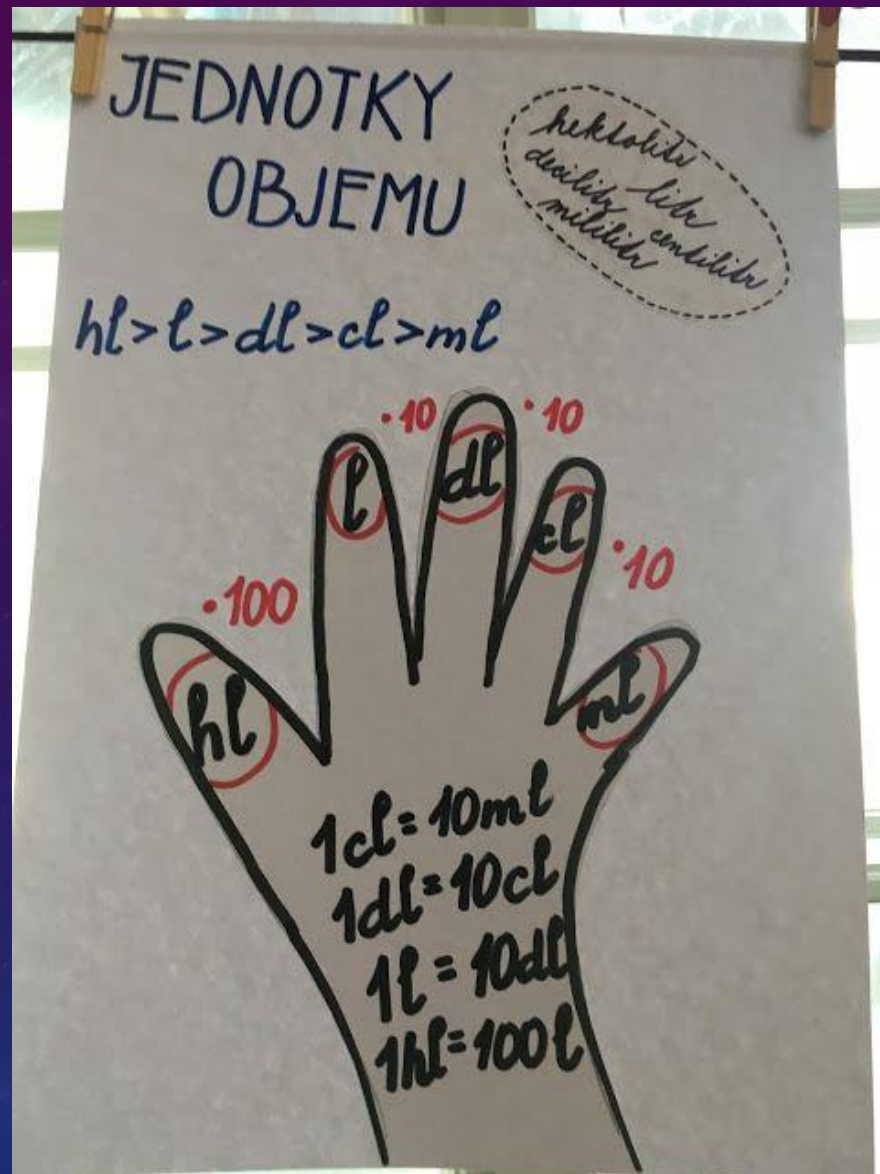 JEDNOTKY
OBJEMU
hektolitr
decilitr litr
mililitr centilitr
hl>l>dl>cl>ml
·100
·10
·10
·10
hl
l
dl
cl
ml
1cl=10ml
1dl=10cl
1l=10dl
1hl=100l